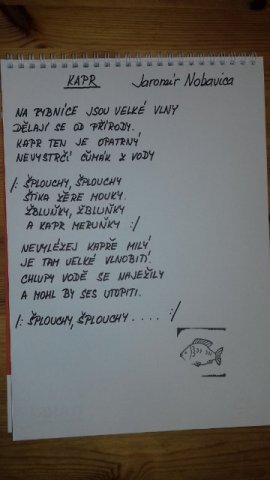 KAPR Jaromír Nohavica
NA RYBNÍCE JSOU VELKÉ VLNY
DĚLAJÍ SE OD PŘÍRODY.
KAPR TEN JE OPATRNÝ
NEVYSTRČÍ ČUMÁK Z VODY
/: ŠPLOUCHY, ŠPLOUCHY
ŠTIKA ŽERE MOUKY.
ŽBLUŇKY, ŽBLUŇKY
A KAPR MERUŇKY :/
NEVYLÉZEJ KAPŘE MILÝ
JE TAM VELKÉ VLNOBITÍ.
CHLUPY VODĚ SE NAJEŽILY
A MOHL BY SES UTOPITI.
/: ŠPLOUCHY, ŠPLOUCHY . . . . :/